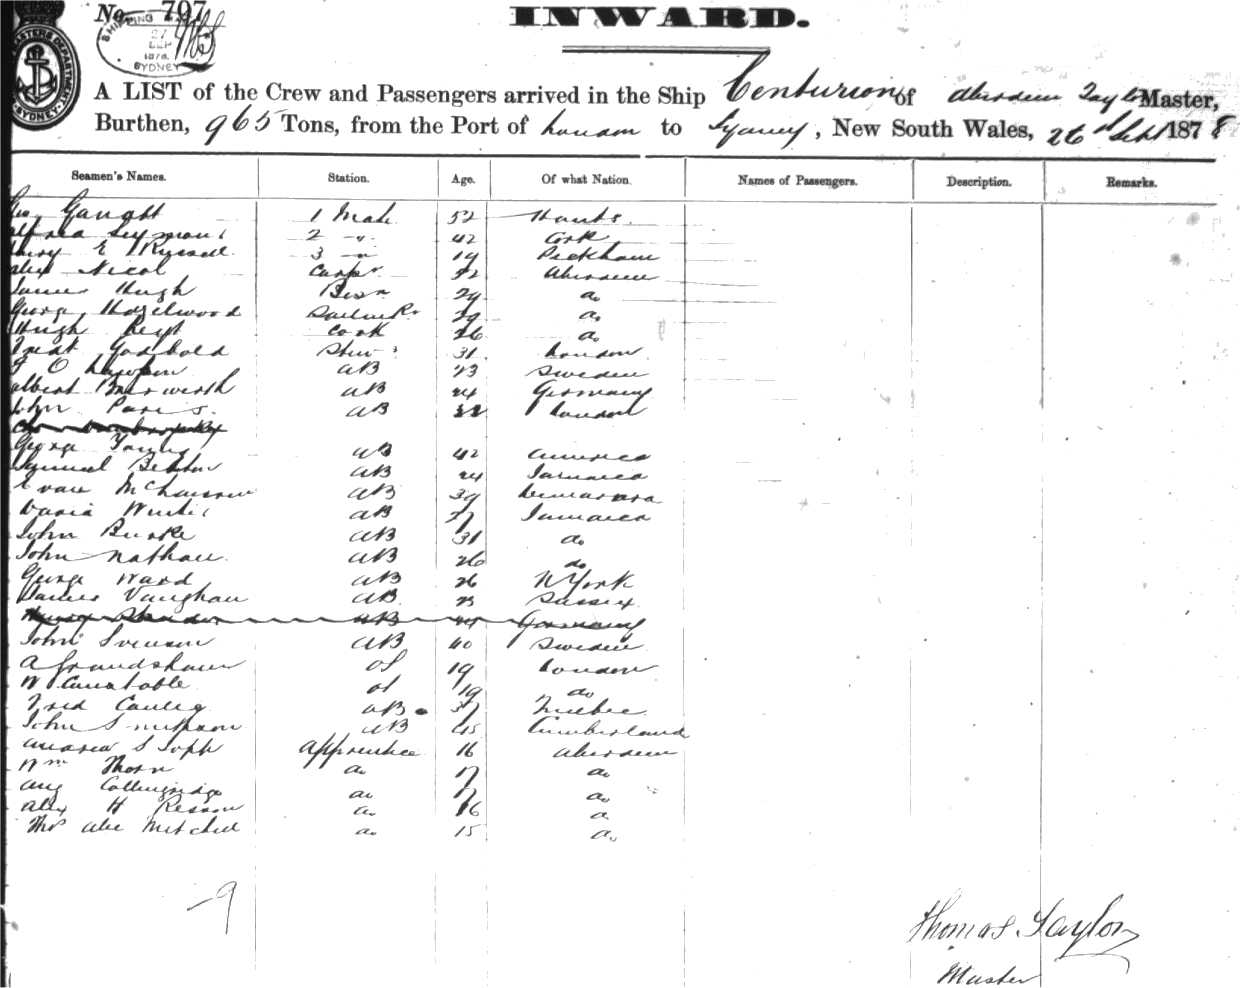 No. 797
INWARD.
SHIPPING
27
SEP
1878
SYDNEY
MASTERS DEPARTMENT
SYDNEY
A LIST of the Crew and Passengers arrived in the Ship Centurion of Aberdeen Taylor Master,
Burthen, 965 Tons, from the Port of London to Sydney, New South Wales, 26 Sept 1878
Seamen's Names. Station. Age. Of what Nation. Names of Passengers. Description. Remarks.
1 Mate 52 Hants
2 " 42 Cork
E Russell 3 " 19 Peckham
Alex Nicol Carpr 52 Aberdeen
James Hugh Bosn 29 do
George Hazelwood Sailmkr 39 do
Hugh Cook 26 do
Godbold Stew 31 London
AB 23 Sweden
Albert AB 24 Germany
John AB London
George Young AB 42 America
Samuel AB 24 Jamaica
Evan AB 39 Demarara
David AB 37 Jamaica
John Burke AB 31 do
John Nathan AB 26 do
George Ward AB 26 N York
James Vaughan AB 23 Sussex
AB Germany
John Svenson AB 40 Sweden
A OS 19 London
W Constable OS 19 do
Fred AB 37 Quebec
John Simpson AB 45 Cumberland
Andrew S Apprentice 16 Aberdeen
Wm Thorn do 17 do
Aug Collingridge do 17 do
Alex H do 16 do
Thos Alex Mitchell do 15 do
9
Thomas Taylor
Master